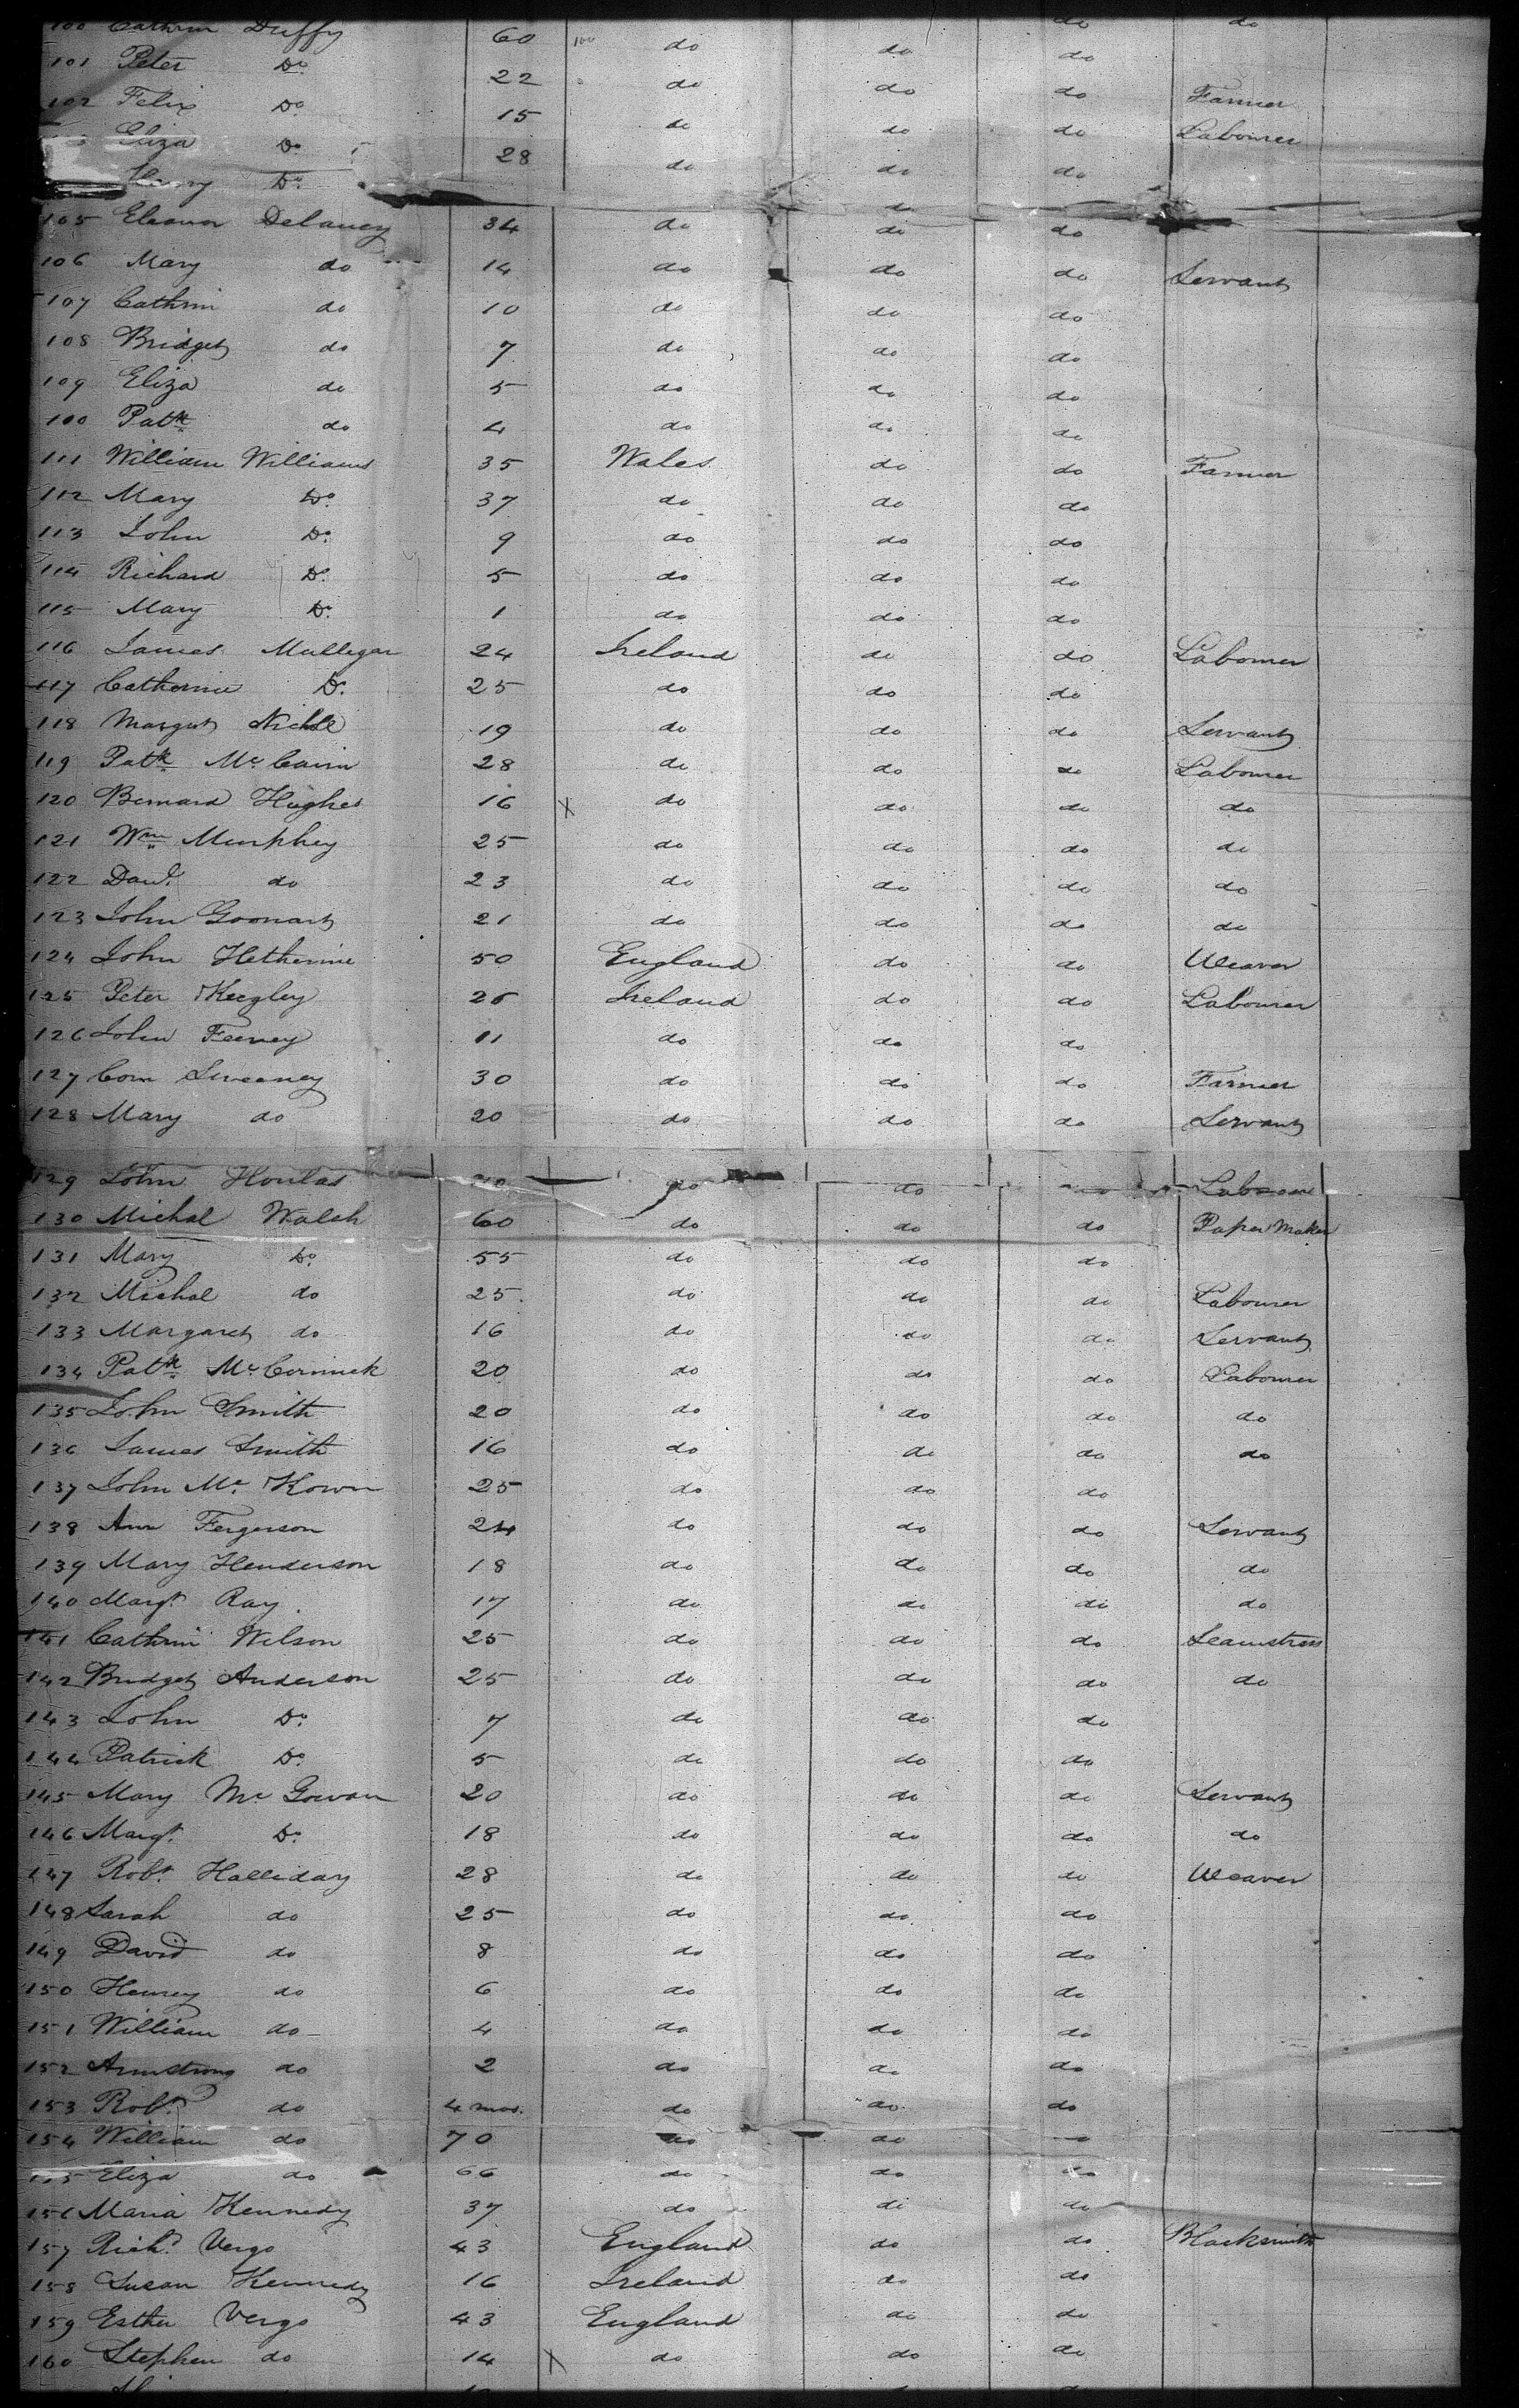 100 Cathrin Duffy 60 do do do do
101 Peter Do 22 do do do Farmer
102 Felix Do 15 do do do Labourer
Eliza Do 28 do do do
Do
105 Eleanor Delaney 34 do do do
106 Mary do 14 do do do Servant
107 Cathrin do 10 do do do
108 Bridget do 7 do do do
109 Eliza do 5 do do do
100 Patk do 4 do do do
111 William Williams 35 Wales do do Farmer
112 Mary Do 37 do do do
113 John Do 9 do do do
114 Richard Do 5 do do do
115 Mary Do 1 do do do
116 James Mullegan 24 Ireland do do Labourer
117 Catherine Do 25 do do do
118 Margret Nichle 19 do do do Servant
119 Patk McCairn 28 do do do Labourer
120 Bernard Hughes 16 X do do do do
121 Wm Murphey 25 do do do do
122 Danl do 23 do do do do
123 John Goonart 21 do do do do
124 John Hetherine 50 England do do Weaver
125 Peter Keegley 26 Ireland do do Labourer
126 John Feeney 11 do do do
127 Corn Sweeney 30 do do do Farmer
128 Mary do 20 do do do Servant
129 John Honlas do do Labourer
130 Michal Walsh 60 do do do Paper Maker
131 Mary Do 55 do do do
132 Michal do 25 do do do Labourer
133 Margaret do 16 do do do Servant
134 Patk McCormick 20 do do do Labourer
135 John Smith 20 do do do do
136 James Smith 16 do do do do
137 John Mc Kown 25 do do do
138 Ann Fergerson 24 do do do Servant
139 Mary Henderson 18 do do do do
140 Margt Ray 17 do do do do
141 Cathrin Wilson 25 do do do Seamstress
142 Bridget Anderson 25 do do do do
143 John Do 7 do do do
144 Patrick Do 5 do do do
145 Mary Mc Gowan 20 do do do Servant
146 Margt Do 18 do do do do
147 Robt Halliday 28 do do do Weaver
148 Sarah do 25 do do do
149 David do 8 do do do
150 Henrey do 6 do do do
151 William do 4 do do do
152 Armstrong do 2 do do do
153 Robt do 4 mos. do do do
154 William do 70 do do
155 Eliza do 66 do do do
156 Maria Kennedy 37 do do do
157 Richd Vergo 43 England do do Blacksmith
158 Susan Kennedy 16 Ireland do do
159 Esther Vergo 43 England do do
160 Stephen do 14 X do do do